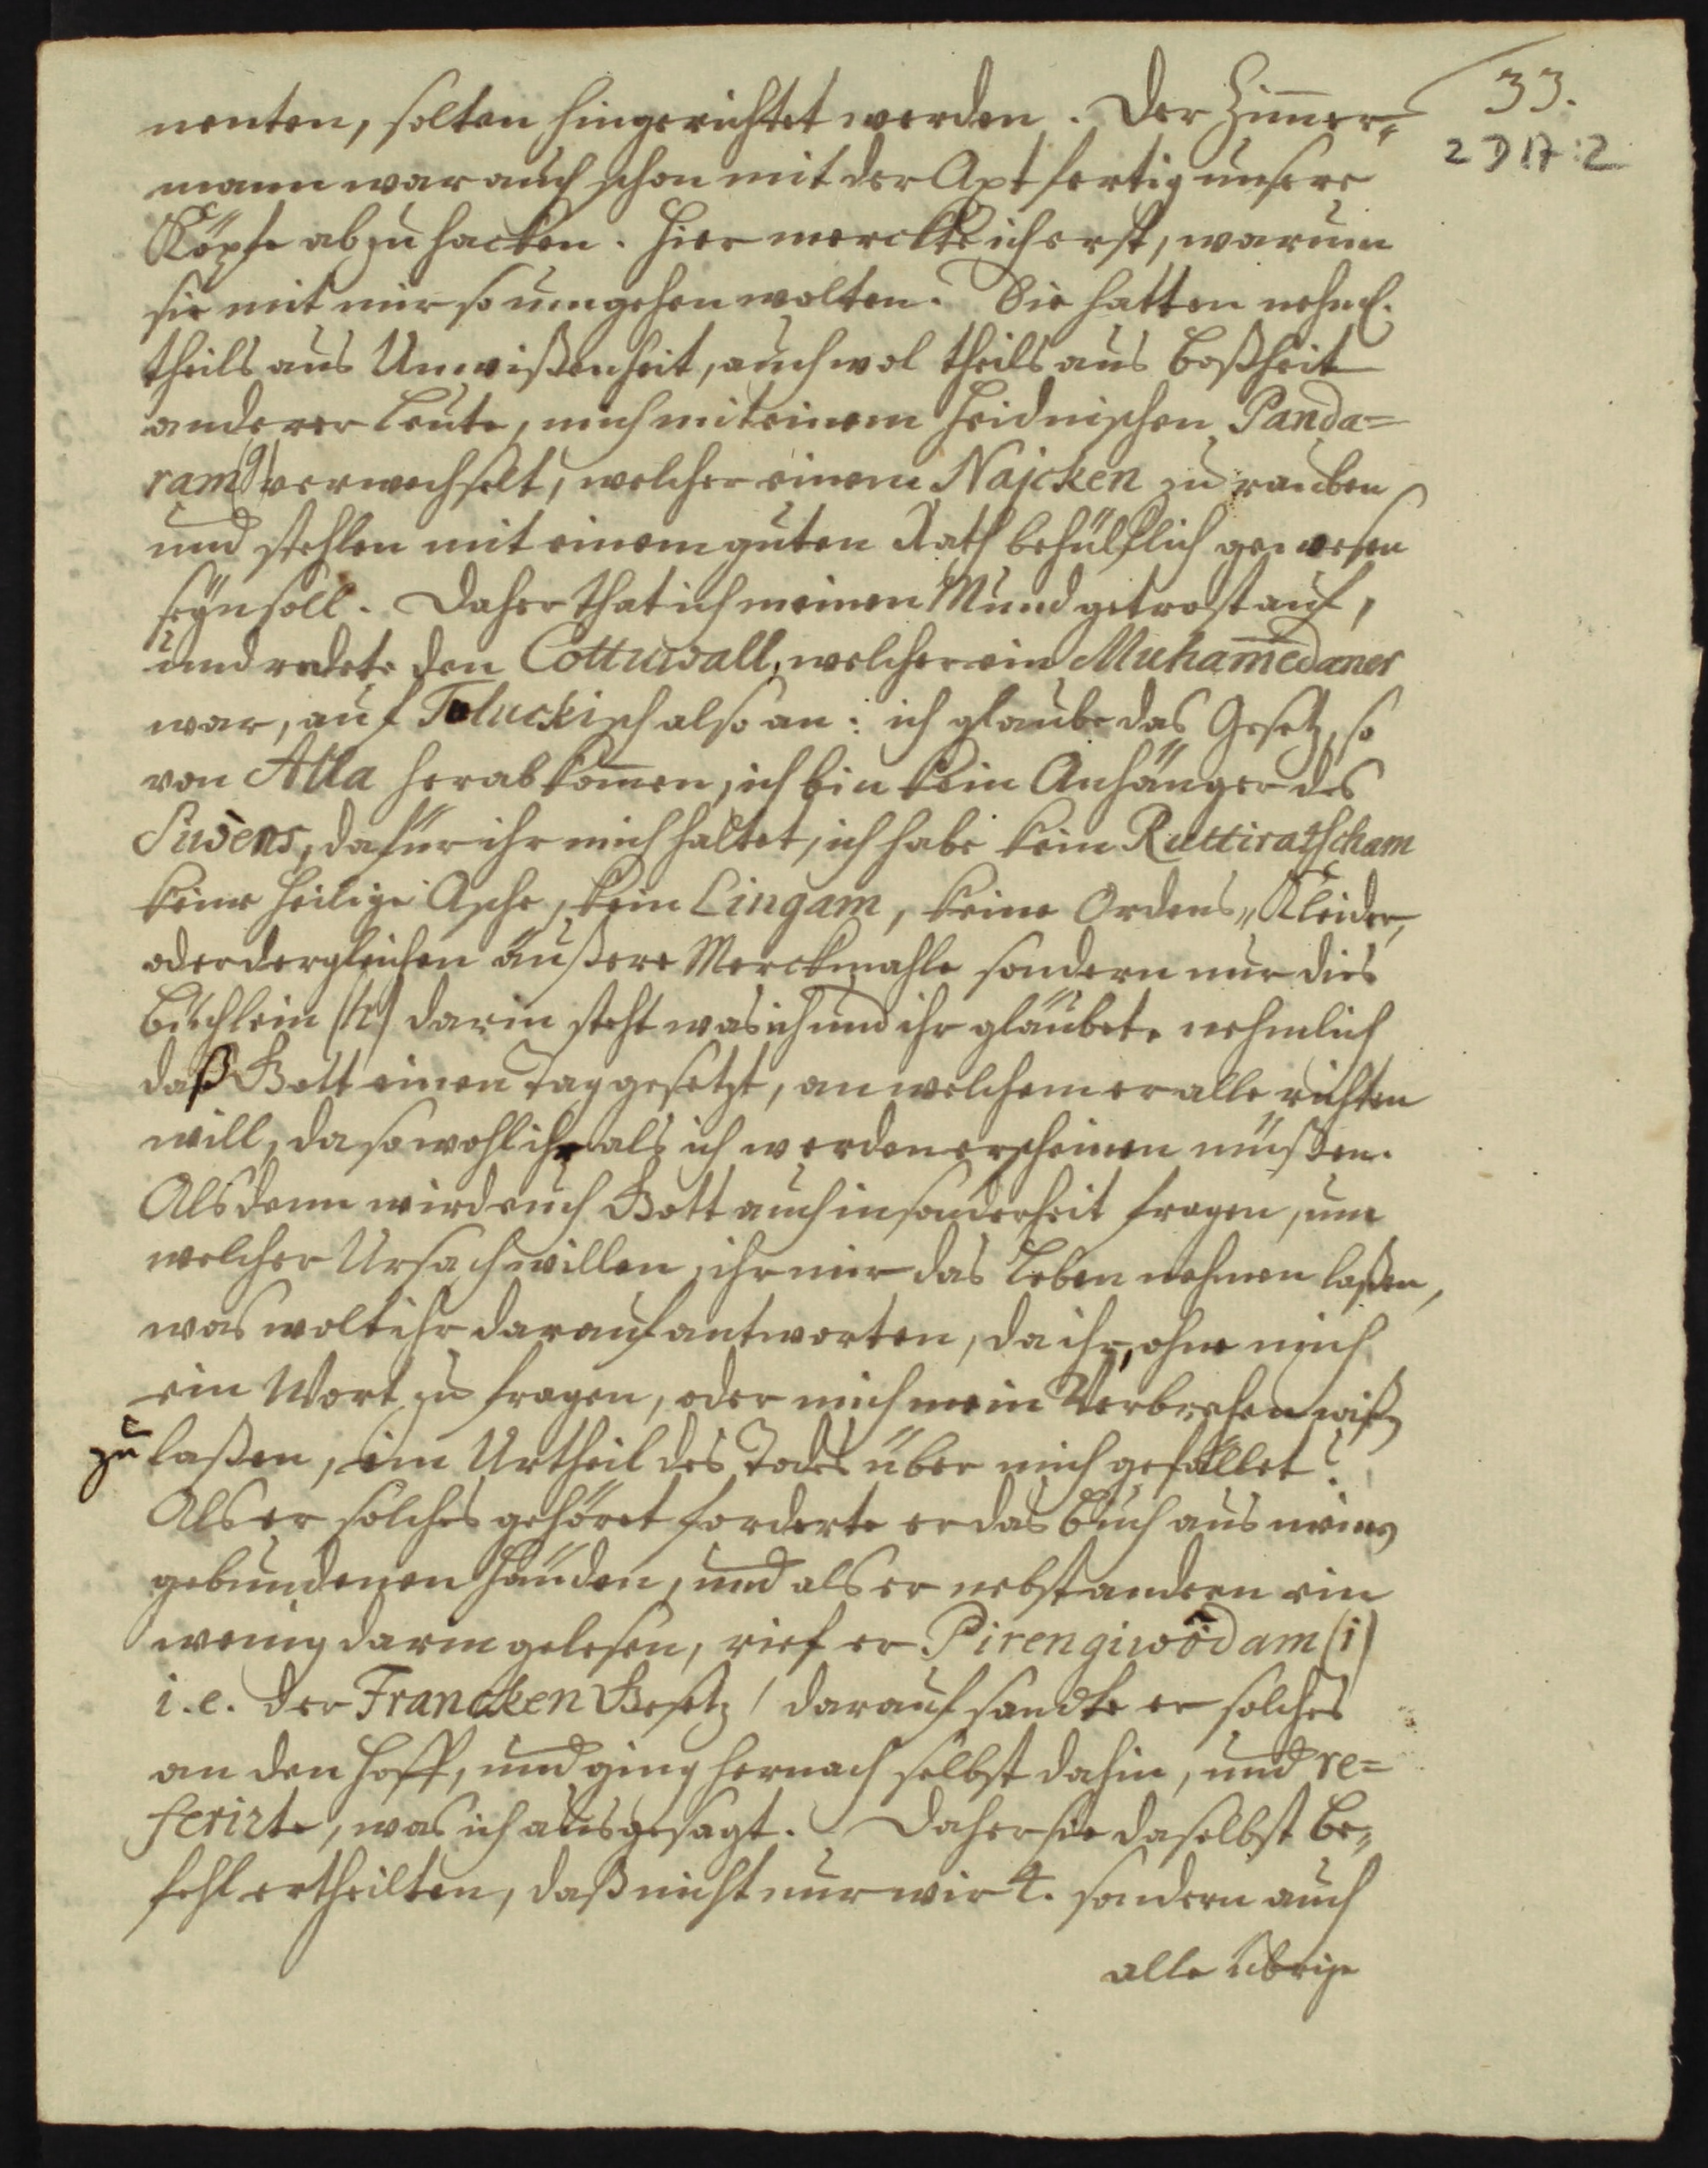 33.
2 D 17:2
nenten, solten hingerichtet werden. Der Zim̄er„
mann war auch schon mit der Axt fertig unsere
Köpfe abzuhacken. Hier merckte ich erst, warum
sie mit mir so umgehen wolten. Sie hatten nehml.
theils aus Unwißenheit, auch wol theils aus Boßheit
anderer Leute, mich mit einem heidnischen Panda=
ram (g) verwechselt, welcher einem Najcken zu rauben
und stehlen mit einem guten Rath behülflich gewesen
seyn soll. Daher that ich meinen Mund getrost auf,
und redete den Cottuwall, welcher ein Muham̄edaner
war, auf Teluckisch also an: ich glaube das Gesetz, so
von Alla herabkom̄en, ich bin kein Anhänger des
Suwens, dafür ihr mich haltet, ich habe kein Ruttiratscham
keine heilige Asche, kein Lingam, keine Ordens„Kleider,
oder dergleichen äußere Merckmahle sondern nur dies
Büchlein (h) darin steht was ich und ihr gläubet, nehmlich
daß Gott einen Tag gesetzt, an welchem er alle richten
will, da sowohl ihr als ich werden erscheinen müßen.
Alsdenn wird euch Gott auch insonderheit fragen, um
welcher Ursach willen, ihr mir das Leben nehmen laßen,
was wolt ihr darauf antworten, da ihr, ohne mich
ein Wort zu fragen, oder mich mein Verbrechen wißen
zu laßen, ein Urtheil des Todes über mich gefället?
Als er solches gehöret forderte er das Buch aus meinen
gebundenen Händen, und als er nebst andern ein
wenig darin gelesen, rief er Pirengiwödam (i)
i.e. der Francken Gesetz! darauf sandte er solches
an den Hoff, und ging hernach selbst dahin, und re=
ferirte, was ich ausgesagt. Daher sie daselbst Be„
fehl ertheilten, daß nicht nur wir 4. sondern auch
alle übrige